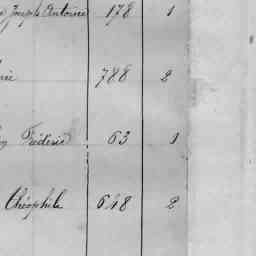 Joseph Antoine 178 1
788 2
Frédéric 63 1
Théophile 648 2